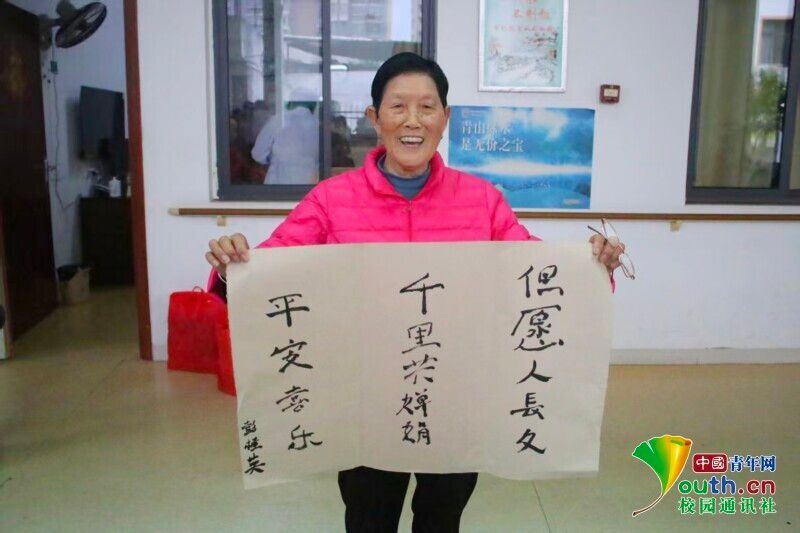 但愿人長久
千里共婵娟
平安喜乐
青山绿水
是无价之宝
中國青年网
youth.cn
校园通讯社